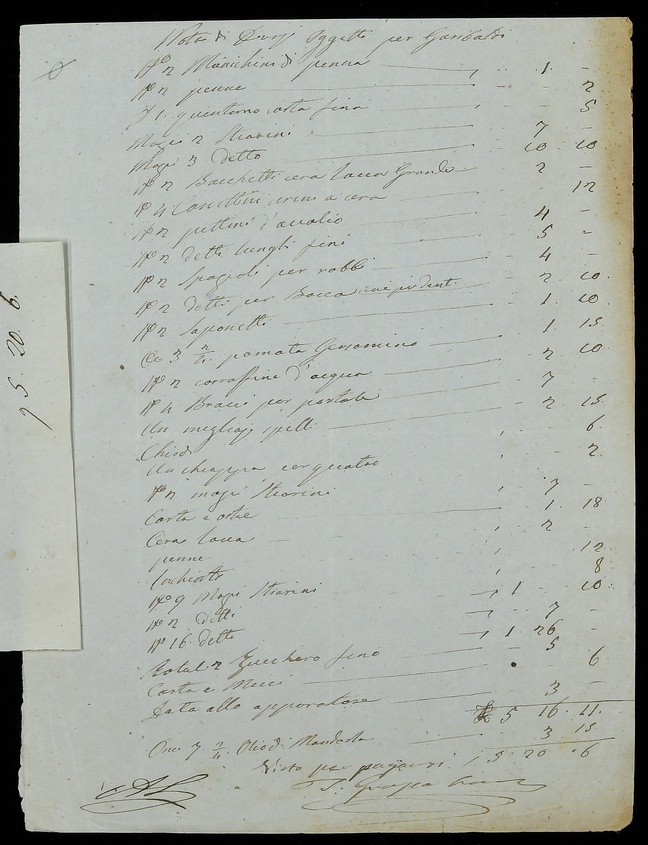 Nota di Diversi Oggetti per Garibaldi
N° 2 Manichini di penna , 1. -
N° 2 penne 2.
N° 1. quinterno carta fina 5
Mazzi 2 Stearini 7 -
Mazzi 3 detto 10 10
N° 2 Bacchetti cera lacca Grande 2 -
N° 4 a cera 12
N° 2 pettini d'avolio 4 -
N° 2 detti lunghi fini 5 -
N° 2 Spazzoli per robbi 4 -
N° 2 detti per Bocca 2 10
N° 2 Saponetti 1. 10
3 pomata Gensomino 1 15
N° 2 carraffini d'acqua 2 10
N° 4 Bracci per portale 7 -
Un migliajo spilli 2 15.
Chiodi 6.
Un chiappa 2.
N° 2 mazzi Stearini 7 -
Carta e ostie 1. 18
Cera lacca 2 -
penne 12
Inchiostro 8
N° 9 Mazzi Stearini 1 10
N° 2 Detti 7 -
N° 16. detto 1 26 -
Rotul. 2 Zucchero fino 5
Carta e 6
apparatore 3 -
5 16 11.
7 Olio di Mandorla 3 15
Visto per pagarsi , 5 20 6
, 5. 20. 6.